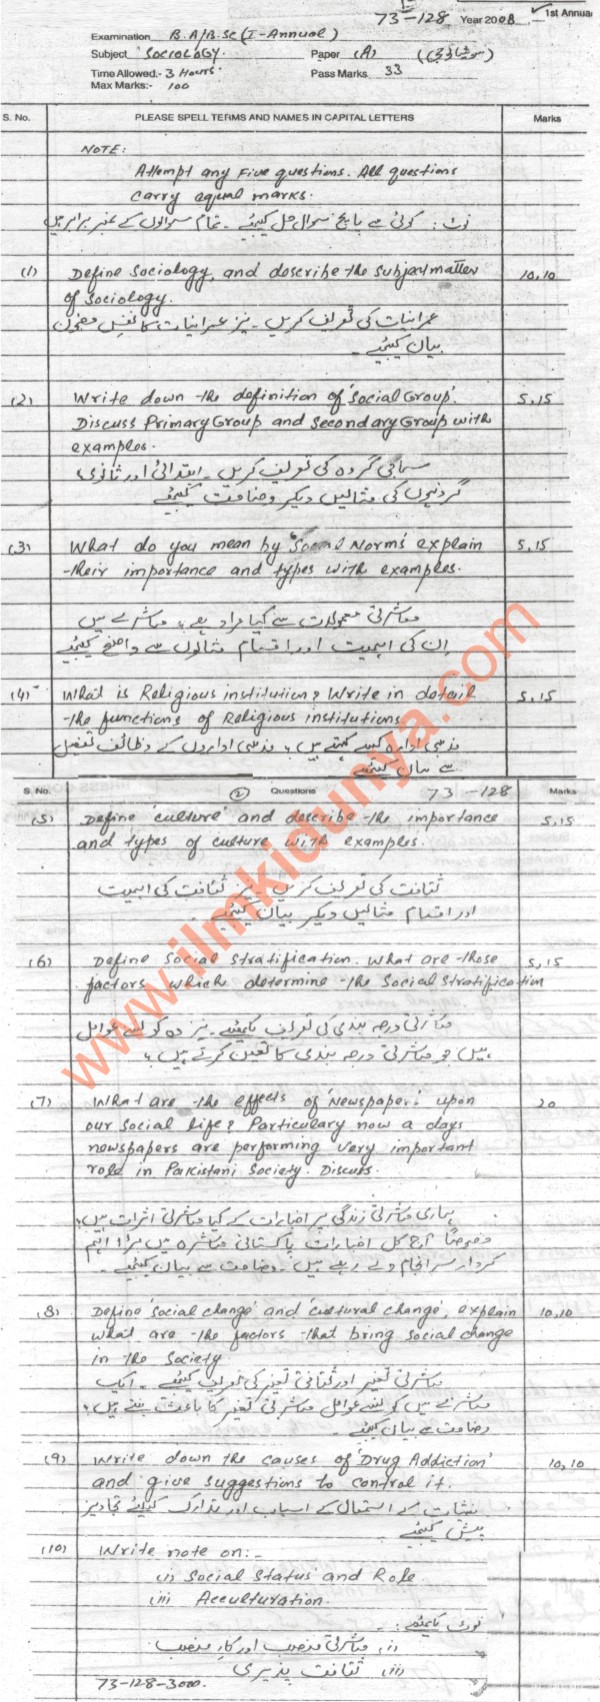 73-128 Year 2008 1st Annual
Examination B.A/B.Sc (I-Annual)
Subject SOCIOLOGY. Paper (A) (سوشیالوجی)
Time Allowed.- 3 Hours Pass Marks 33
Max Marks:- 100
S. No. PLEASE SPELL TERMS AND NAMES IN CAPITAL LETTERS Marks
NOTE:
Attempt any Five questions. All questions
carry equal marks.
نوٹ: کوئی سے پانچ سوال حل کیجئے۔ تمام سوالوں کے نمبر برابر ہیں
(1) Define Sociology, and describe the subject matter 10,10
of Sociology.
عمرانیات کی تعریف کریں۔ نیز عمرانیات کا نفس مضمون
بیان کیجئے۔
(2) Write down the definition of 'Social Group'. 5,15
Discuss Primary Group and Secondary Group with
examples.
سماجی گروہ کی تعریف کریں۔ ابتدائی اور ثانوی
گروہوں کی مثالیں دیکر وضاحت کیجئے
(3) What do you mean by 'Social Norms' explain 5,15
their importance and types with examples.
معاشرتی معمولات سے کیا مراد ہے؟ معاشرے میں
ان کی اہمیت اور اقسام مثالوں سے واضح کیجئے
(4) What is Religious institution? Write in detail 5,15
the functions of Religious institutions.
مذہبی ادارہ کسے کہتے ہیں؟ مذہبی اداروں کے وظائف تفصیل
سے بیان کیجئے
S. No. (2) Questions 73-128 Marks
(5) Define 'culture' and describe the importance 5,15
and types of culture with examples.
ثقافت کی تعریف کریں۔ نیز ثقافت کی اہمیت
اور اقسام مثالیں دیکر بیان کیجئے۔
(6) Define Social Stratification. What are those 5,15
factors which determine the Social Stratification
معاشرتی درجہ بندی کی تعریف کیجئے۔ نیز وہ کونسے عوامل
ہیں جو معاشرتی درجہ بندی کا تعین کرتے ہیں؟
(7) What are the effects of 'Newspaper' upon 20
our Social life? Particulary now a days
newspapers are performing very important
role in Pakistani Society. Discuss.
ہماری معاشرتی زندگی پر اخبارات کے کیا معاشرتی اثرات ہیں؟
خصوصاً آج کل اخبارات پاکستانی معاشرہ میں بڑا اہم
کردار سرانجام دے رہے ہیں۔ وضاحت سے بیان کیجئے۔
(8) Define 'Social change' and 'cultural change', explain 10,10
what are the factors that bring Social change
in the Society
معاشرتی تغیر اور ثقافتی تغیر کی تعریف کیجئے۔ ایک
معاشرے میں کونسے عوامل معاشرتی تغیر کا باعث بنتے ہیں؟
وضاحت سے بیان کیجئے۔
(9) Write down the causes of 'Drug Addiction' 10,10
and give suggestions to control it.
منشیات کے استعمال کے اسباب اور تدارک کیلئے تجاویز
پیش کیجئے۔
(10) Write note on:-
(i) Social Status and Role
(ii) Acculturation.
نوٹ لکھیے:-
(i) معاشرتی منصب اور کار منصب
(ii) ثقافت پذیری
73-128-3000.
www.ilmkidunya.com